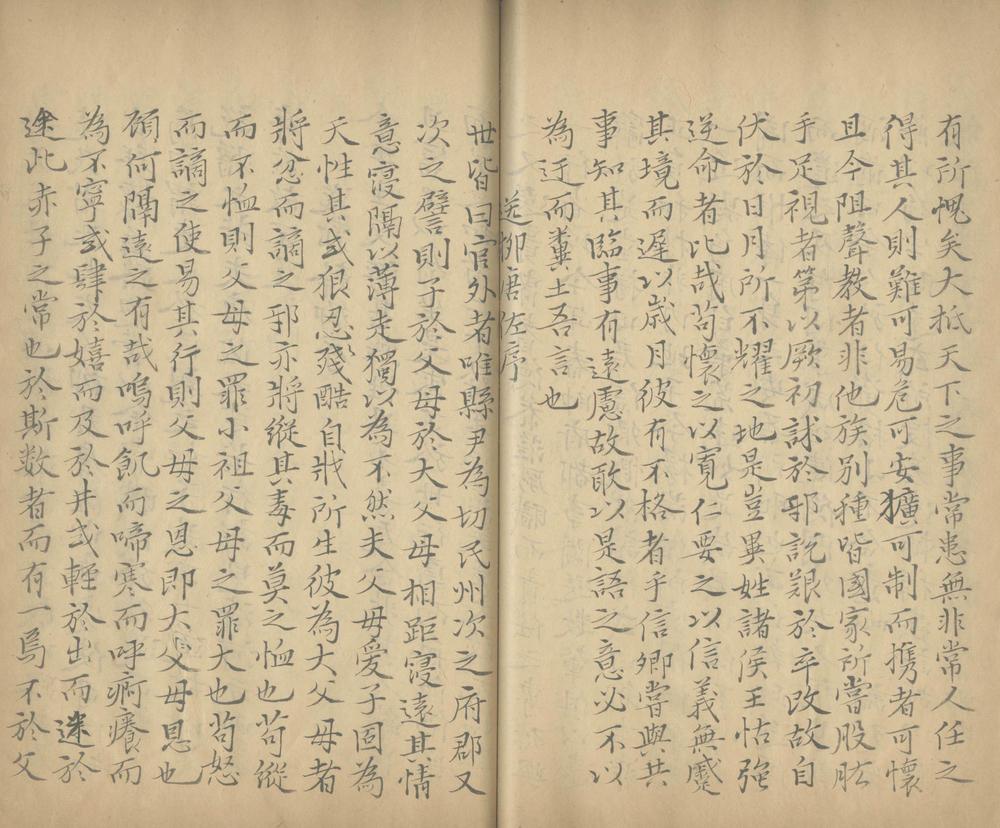 有所愧矣大抵天下之事常患無非常人任之
得其人則難可易危可安獷可制而携者可懷
且今阻聲教者非他族別種皆國家所嘗股肱
手足視者第以厥初訹於邪說艱於卒改故自
伏於日月所不耀之地是豈異姓諸侯王怙強
逆命者比哉苟懷之以寬仁要之以信義無蹙
其境而遲以歲月彼有不格者乎信卿嘗與共
事知其臨事有遠慮故敢以是語之意必不以
為迂而糞土吾言也
送柳唐佐序
世皆曰官外者唯縣尹為切民州次之府郡又
次之譬則子於父母於大父母相距寖遠其情
意寖隔以薄走獨以為不然夫父母愛子固為
天性其或狠忍殘酷自戕所生彼為大父母者
將忿而謫之邪亦將縱其毒而莫之恤也苟縱
而不恤則父母之罪小祖父母之罪大也苟怒
而謫之使易其行則父母之恩即大父母恩也
顧何隔遠之有哉嗚呼飢而啼寒而呼痾癢而
為不寧或肆於嬉而及於井或輕於出而迷於
途此赤子之常也於斯数者而有一焉不於父